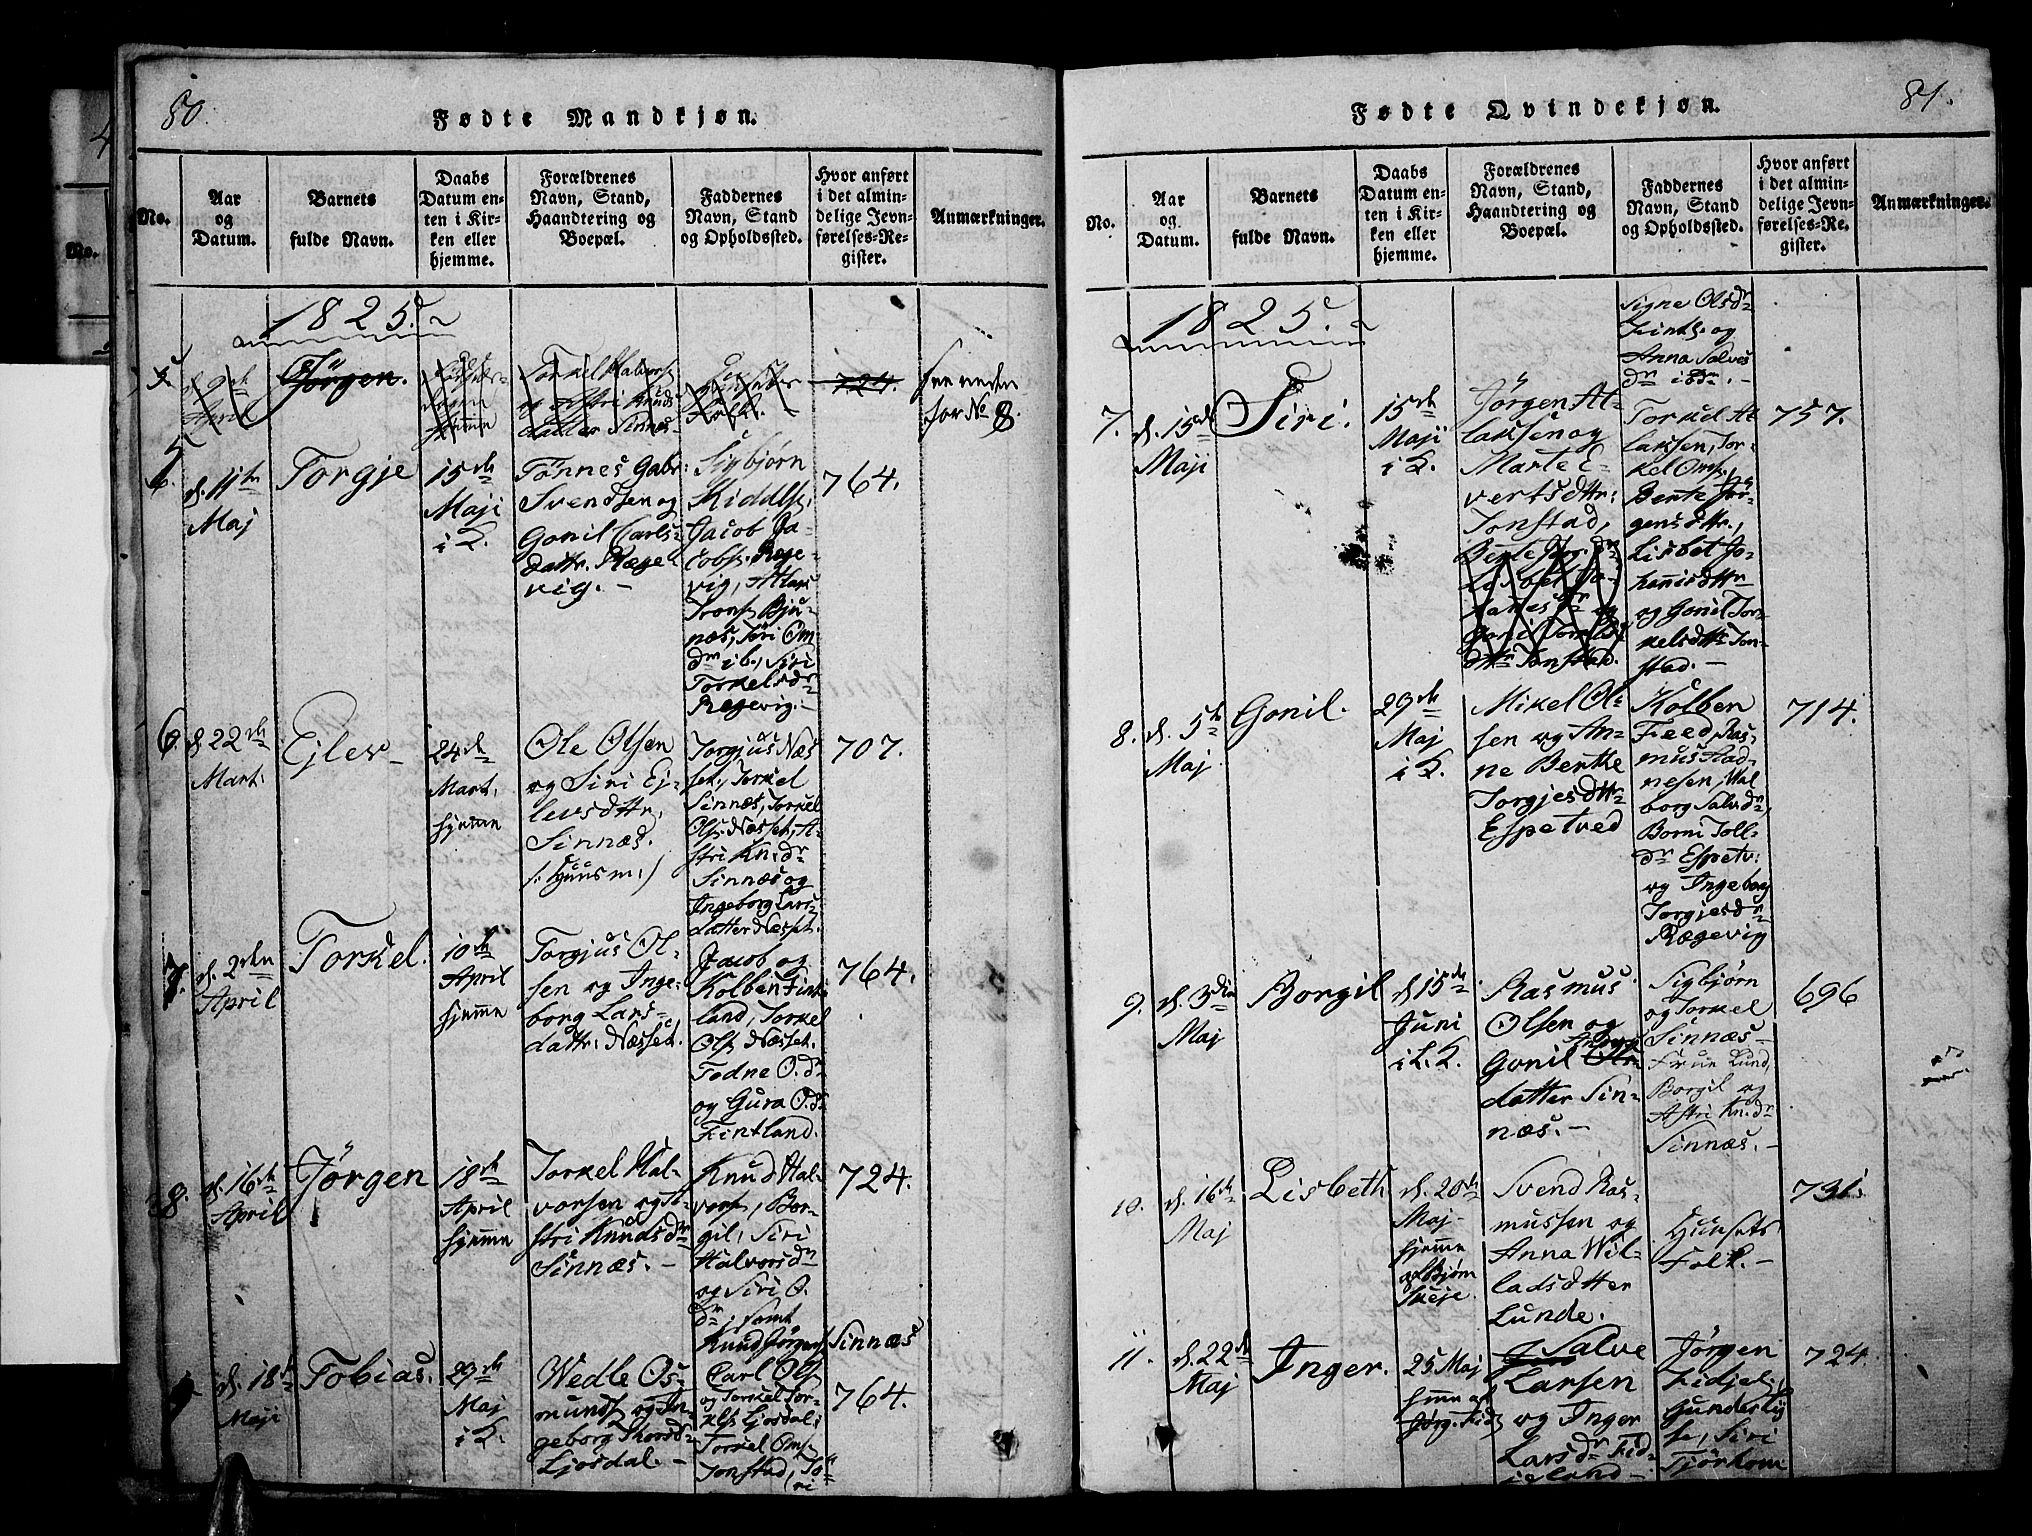 80.
Fødte Mandkjøn.
No.
Aar
og
Datum.
Barnets
fulde Navn.
Daabs
Datum en-
ten i Kir-
ken eller
hjemme.
Forældrenes
Navn, Stand,
Haandtering og
Boepæl.
Faddernes
Navn, Stand
og Opholdssted.
Hvor anført
i det almin-
delige Jevn-
førelses-Re-
gister.
Anmærkninger.
1825.
April
Jørgen.
Torkel Halvors
og Astri Knuds
datter Sinnes
Folk.
724.
see neden
for No 8.
5
d. 11te
Maj
Torgje
15de
Maji
i K.
Tønnes Gabr:
Svendsen og
Gonil Carls-
dattr. Rege-
vig. –
Sigbjørn
Kiddels,
Jacob Ja-
cobs. Rege-
vig, Atlak
Trons, Bju-
næs, Siri Om
dr ib., Siri
Torkelsdr
Regevig. –
764.
6.
d 22de
Mart:
Ejlev –
24de
Mart.
hjemme
Ole Olsen
og Siri Ej-
levsdttr,
Sinnæs.
/: Huusm :/
Torgjus Næs
set, Torkel
Sinnæs, Torkel
Ols. Næsset, A-
stri Kn.dr
Sinnæs og
Ingeborg Lars
datter Næsset.
707.
7.
d. 2den
April
Torkel.
10de
April
hjemme
Torgjus Ol-
sen og Inge-
borg Lars-
dattr: Næsset.
Jacob og
Kolben Fint-
land, Torkel
Ols. Næsset.
Todne O.dr
og Gura O.dr
Fintland.
764.
8.
d. 16de
April
Jørgen
18de
April
hjemme
Torkel Hal-
vorsen og A-
stri Knudsdr
Sinnæs. –
Knud Hal-
vors, Bor-
gil, Siri
Halvorsdr
og Siri O.
dr, samt
Knud Jørgens Sinnæs
724.
9
d. 18de
Maji
Tobias.
29de
Maj
i K.
Wedle Os-
munds og In-
geborg Thorsd-
Ljosdal. –
Carl Ols
og Torkel Tor-
kels Ljosdal,
Torkel Oms.
Tonstad, To-
ri
764.
81.
Fødte Qvindekjøn.
No.
Aar
og
Datum.
Barnets
fulde Navn.
Daabs
Datum en-
ten i Kir-
ken eller
hjemme.
Forældrenes
Navn, Stand,
Haandtering og
Boepæl.
Faddernes
Navn, Stand
og Opholdssted.
Hvor anført
i det almin-
delige Jevn-
førelses-Re-
gister.
Anmærkninger.
1825.
Signe Olsdr
Fintl. og
Anna Salves
dr ibdm. –
7.
d. 15de
Maji
Siri.
15de
Maji
i K.
Jørgen At-
laksen og
Marte E-
vertsdttr:
Tonstad,
Torkel At-
laksen, Tor-
kel Oms,
Bente Jør-
gensdttr.,
Lisbet Jo-
hannisdttr
og Gonil Tor-
kelsdttr Ton-
stad. –
757.
8.
d. 5te
Maj
Gonil.
29de
Maj
i K.
Mikel Ol-
sen og An-
ne Bertke
Torgjesdttr
Espetved
Kolben
Feed, Ras-
mus Aad-
nesen, Wal
borg Salvdr,
Borni Toll-
dr Espetv:
og Ingeborg
Torgjesdr
Rægevig
714.
9.
d. 3die
Maj
Borgil
d. 15de
Juni
i L. K.
Rasmus
Olsen og
Gonil
datter Sin-
næs. –
Sigbjørn
og Torkel
Sinnæs –
Frue Lund,
Borgil og
Astri Kn.dr
Sinnæs. –
696
10.
d. 16de
Maj
Lisbeth
d. 20de
Maj
hjemme
af Bjørn
Skeje
Svend Ras-
mussen og
Anna Wil-
ladsdtter
Lunde.
Huusets
Folk. –
731.
11.
d. 22de
Maj
Inger.
25 Maj
hjme af
Jørg. Fid
Salve
Larsen
og Inger
Larsdr Fid-
jeland –
Jørgen
Fidjel.,
Gunder Ly
se, Siri
Tjørhom
724.